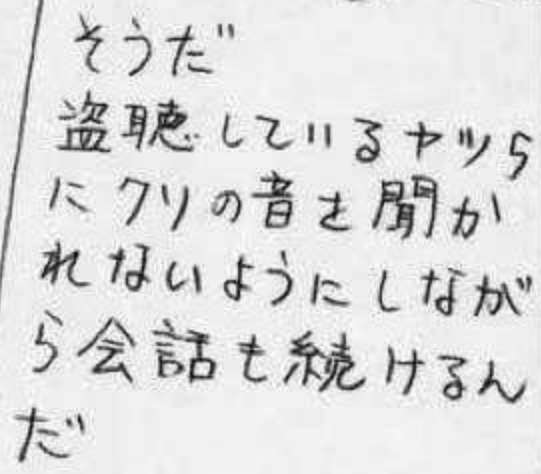 そうだ
盗聴しているヤツら
にクリの音を聞か
れないようにしなが
ら会話も続けるん
だ